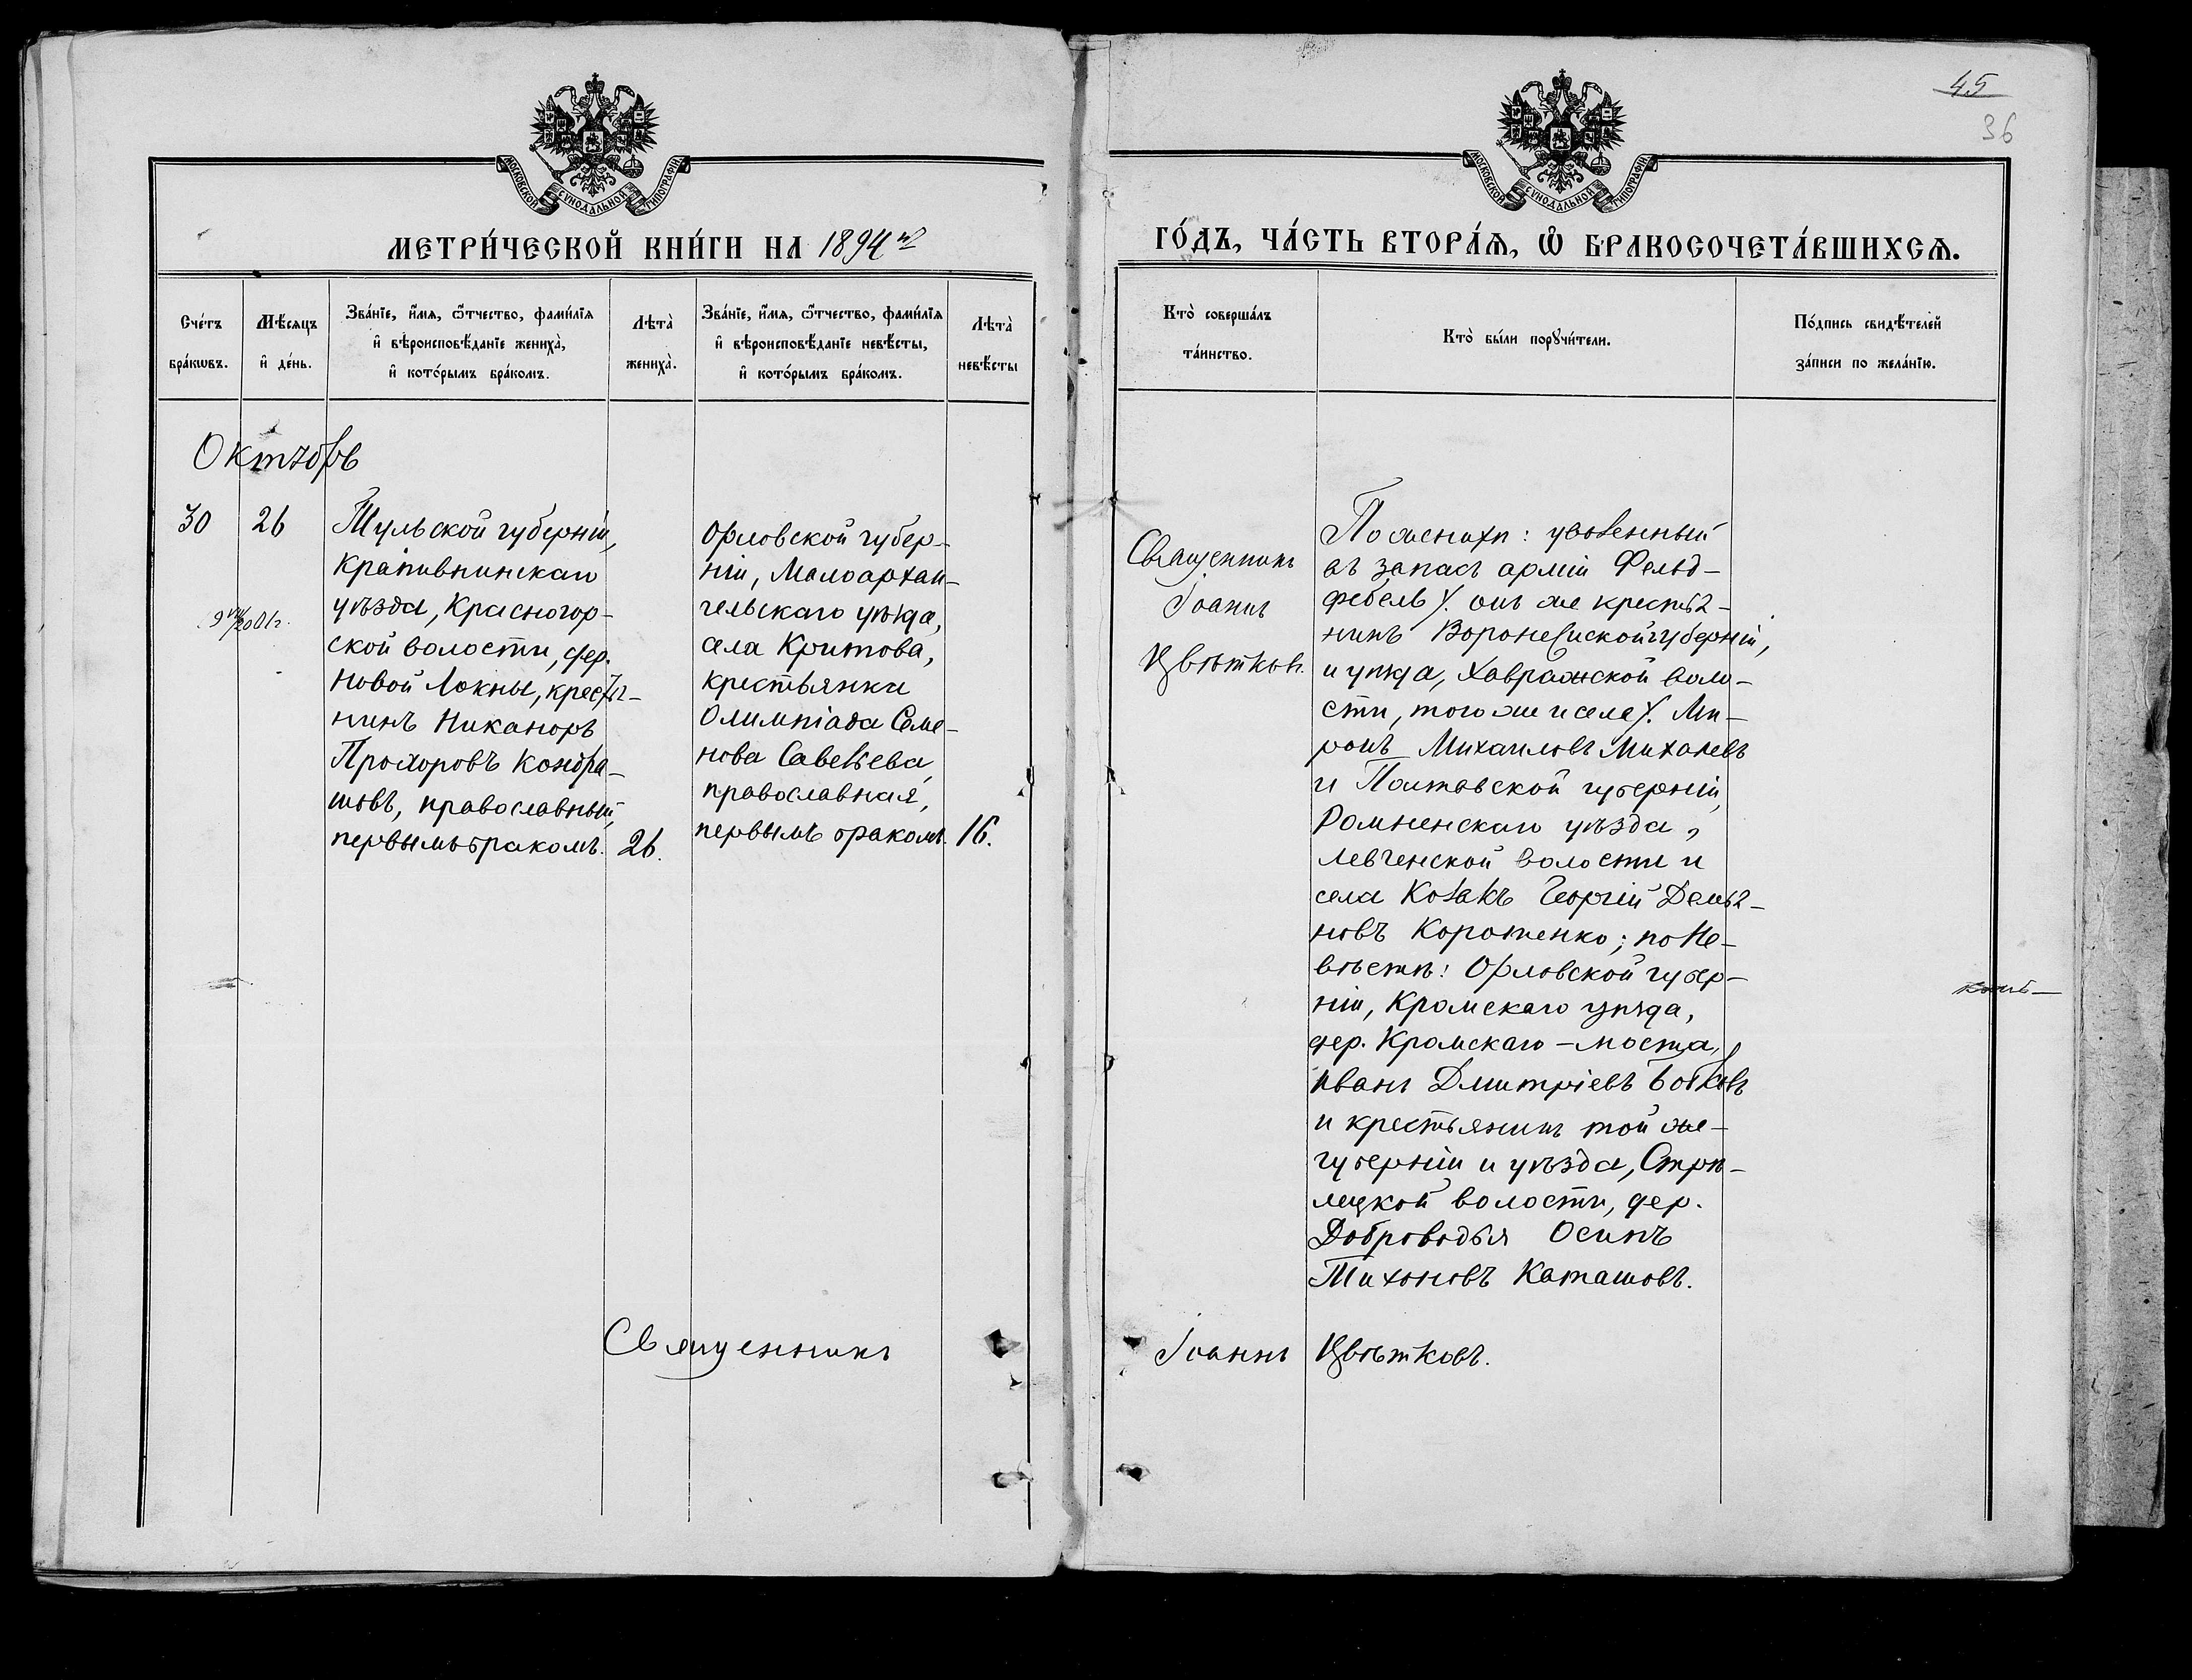 45
36
МОСКОВСКОЙ СѴНОДАЛЬНОЙ ТИПОГРАФІИ
МОСКОВСКОЙ СѴНОДАЛЬНОЙ ТИПОГРАФІИ
МЕТРИ́ЧЕСКОЙ КНИ́ГИ НА 1894й
ГО́ДЪ, ЧА́СТЬ ВТОРА́Ѧ, Ѡ҆ БРАКОСОЧЕТА́ВШИХСѦ.
Сче́тъ
бра́кѡвъ.
Мѣ́сяцъ
и҆ де́нь.
Зва́нїе, и҆́мѧ, ѻ҆́тчество, фами́лїѧ
и҆ вѣроисповѣ́данїе жениха̀,
и҆ кото́рымъ бра́комъ.
Лѣта̀
жениха̀.
Зва́нїе, и҆́мѧ, ѻ҆́тчество, фами́лїѧ
и҆ вѣроисповѣ́данїе невѣ́сты,
и҆ кото́рымъ бра́комъ.
Лѣта̀
невѣ́сты
Кто̀ соверша́лъ
та́инство.
Кто̀ бы́ли порꙋчи́тели.
По́дпись свидѣ́телей
за́писи по жела́нїю.
Октябрь
30
26
9 VIII/2001г.
Тульской губерніи,
Крапивнинскаго
уѣзда, Красногор-
ской волости, дер.
Новой Локны, крестья-
нинъ Никаноръ
Прохоровъ Кондра-
шовъ, православный,
первымъ бракомъ.
26.
Орловской губер-
ніи, Малоархан-
гельскаго уѣзда,
села Критова,
крестьянка
Олимпіада Семе-
нова Савельева,
православная,
первымъ бракомъ.
16.
Священникъ
Іоаннъ
Цвѣтковъ.
По женихѣ: уволенный
въ запасъ арміи Фельд-
фебель онъ же крестья-
нинъ Воронежской губерніи,
и уѣзда, Хавражской воло-
сти, того же и села Ми-
ронъ Михаиловъ Михалевъ
и Полтавской губерніи,
Роменскаго уѣзда,
Левченской волости и
села Козакъ Георгій Демья-
новъ Коротенко; по Не-
вѣстѣ: Орловской губер-
ніи, Кромскаго уѣзда,
дер. Кромскаго-моста,
Иванъ Дмитріевъ Бобковъ
и крестьянинъ той же-
губерніи и уѣзда, Стрѣ-
лецкой волости, дер.
Доброводья Осипъ
Тихоновъ Каташовъ.
Священникъ Іоаннъ Цвѣтковъ.